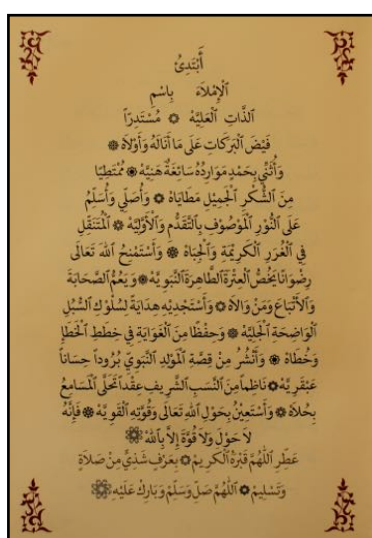 أَبْتَدِئُ
الْإِمْلَاءَ بِاسْمِ
الذَّاتِ الْعَلِيَّهْ ۞ مُسْتَدِرًّا
فَيْضَ الْبَرَكَاتِ عَلَى مَا أَنَالَهُ وَأَوْلَاهْ ۞
وَأُثَنِّي بِحَمْدٍ مَوَارِدُهُ سَائِغَةٌ هَنِيَّهْ ۞ مُمْتَطِيًا
مِنَ الشُّكْرِ الْجَمِيْلِ مَطَايَاهْ ۞ وَأُصَلِّي وَأُسَلِّمُ
عَلَى النُّوْرِ الْمَوْصُوْفِ بِالتَّقَدُّمِ وَالْأَوَّلِيَّهْ ۞ الْمُتَنَقِّلِ
فِي الْغُرَرِ الْكَرِيْمَةِ وَالْجِبَاهْ ۞ وَأَسْتَمْنِحُ اللهَ تَعَالَى
رِضْوَانًا يَخُصُّ الْعِتْرَةَ الطَّاهِرَةَ النَّبَوِيَّهْ ۞ وَيَعُمُّ الصَّحَابَةَ
وَالْأَتْبَاعَ وَمَنْ وَالَاهْ ۞ وَأَسْتَجْدِيْهِ هِدَايَةً لِسُلُوْكِ السُّبُلِ
الْوَاضِحَةِ الْجَلِيَّهْ ۞ وَحِفْظًا مِنَ الْغَوَايَةِ فِي خِطَطِ الْخَطَإِ
وَخُطَاهْ ۞ وَأَنْشُرُ مِنْ قِصَّةِ الْمَوْلِدِ النَّبَوِيِّ بُرُوْدًا حِسَانًا
عَبْقَرِيَّهْ ۞ نَاظِمًا مِنَ النَّسَبِ الشَّرِيْفِ عِقْدًا تَحَلَّى الْمَسَامِعُ
بِحُلَاهْ ۞ وَأَسْتَعِيْنُ بِحَوْلِ اللهِ تَعَالَى وَقُوَّتِهِ الْقَوِيَّهْ ۞ فَإِنَّهُ
لَا حَوْلَ وَلَا قُوَّةَ إِلَّا بِاللهْ ۞
عَطِّرِ اللّٰهُمَّ قَبْرَهُ الْكَرِيْمْ ۞ بِعَرْفٍ شَذِيٍّ مِنْ صَلَاةٍ
وَتَسْلِيْمْ ۞ اللّٰهُمَّ صَلِّ وَسَلِّمْ وَبَارِكْ عَلَيْهِ ۞